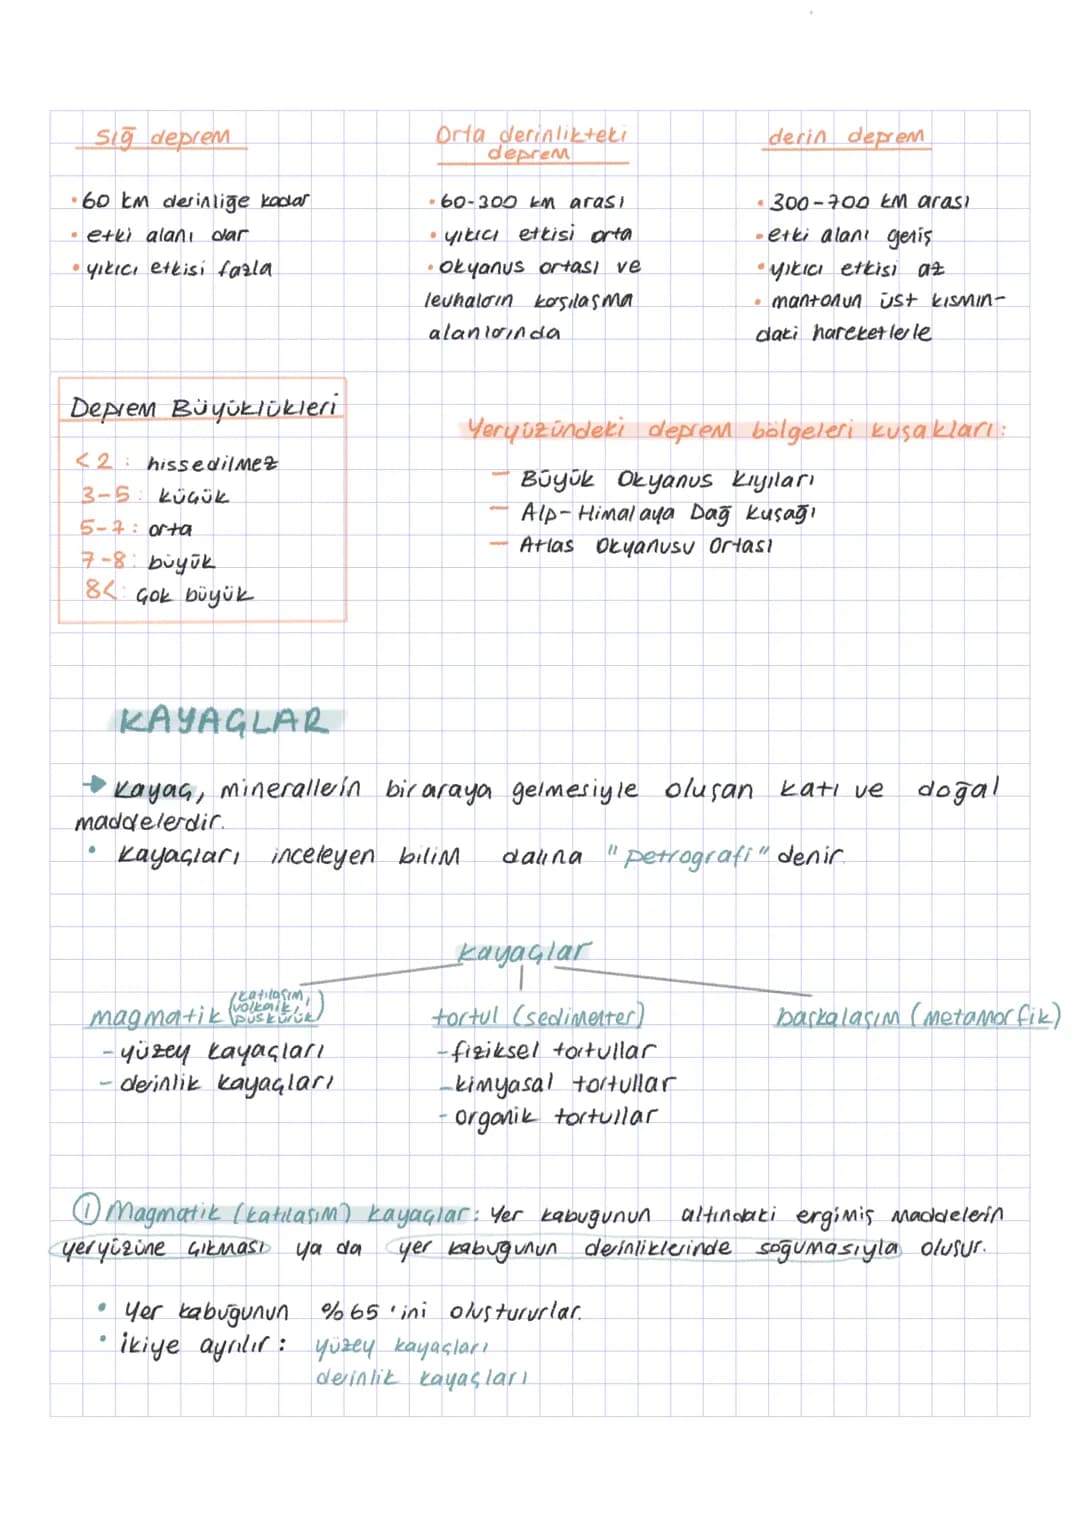 sığ deprem
• 60 km derinliğe kadar
• etki alanı dar
• yıkıcı etkisi fazla
Orta derinlikteki
deprem
• 60-300 km arası
• yıkıcı etkisi orta
• Okyanus ortası ve
levhaların karşılaşma
alanlarında
derin deprem
• 300-700 km arası
• etki alanı geniş
• yıkıcı etkisi az
• mantonun üst kısmın-
daki hareketlerle
Deprem Büyüklükleri
<2 : hissedilmez
3-5 : küçük
5-7 : orta
7-8 : büyük
8< : çok büyük
Yeryüzündeki deprem bölgeleri kuşakları:
— Büyük Okyanus kıyıları
— Alp-Himalaya Dağ kuşağı
— Atlas Okyanusu Ortası
KAYAÇLAR
→ kayaç, minerallerin biraraya gelmesiyle oluşan katı ve doğal
maddelerdir.
• kayaçları inceleyen bilim dalına "petrografi" denir.
kayaçlar
magmatik (katılaşım, volkaik, püskürük)
- yüzey kayaçları
- derinlik kayaçları
tortul (sedimenter)
- fiziksel tortullar
- kimyasal tortullar
- organik tortullar
başkalaşım (metamorfik)
① Magmatik (katılaşım) kayaçlar: Yer kabugunun altındaki ergimiş maddelerin
yeryüzüne çıkması ya da yer kabugunun derinliklerinde soğumasıyla oluşur.
• Yer kabugunun %65'ini oluştururlar.
• ikiye ayrılır: yüzey kayaçları
derinlik kayaçları